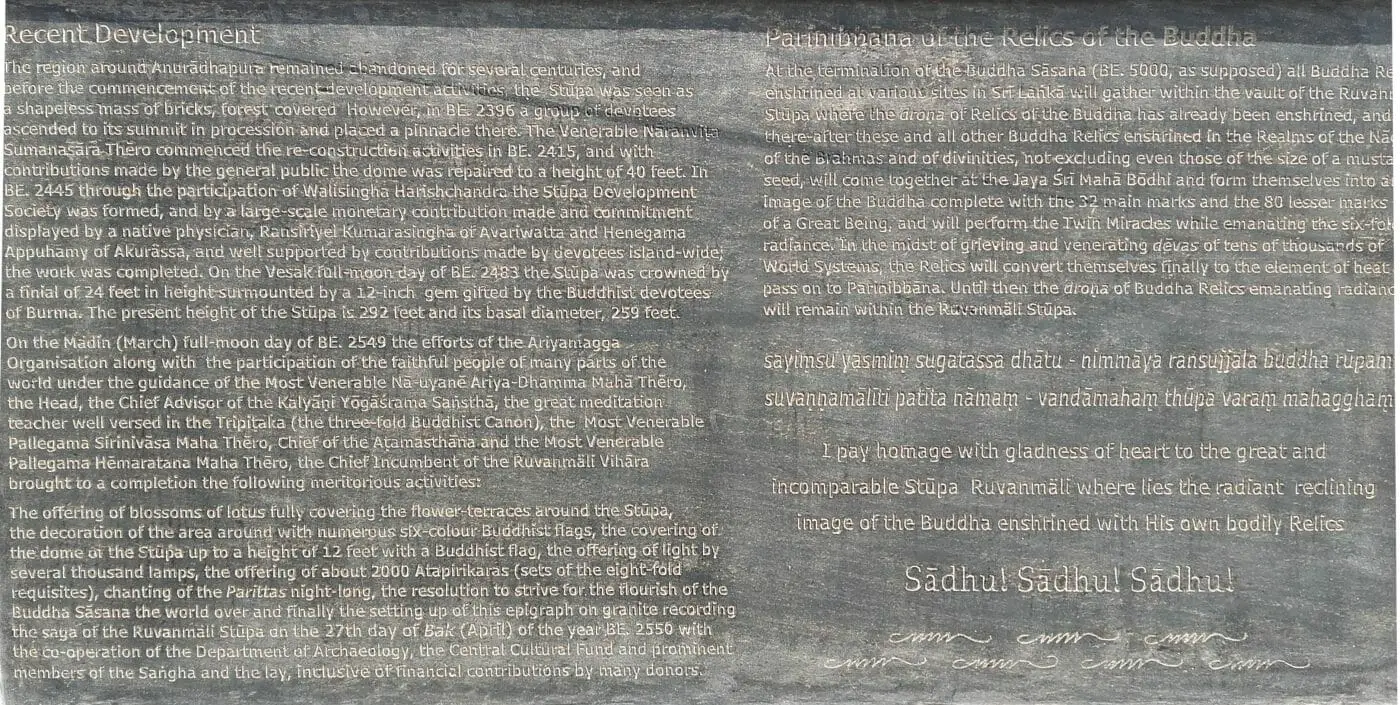 Recent Development
The region around Anurādhapura remained abandoned for several centuries, and
before the commencement of the recent development activities, the Stūpa was seen as
a shapeless mass of bricks, forest covered However, in BE. 2396 a group of devotees
ascended to its summit in procession and placed a pinnacle there. The Venerable Naranvita
Sumanasāra Thēro commenced the re-construction activities in BE. 2415, and with
contributions made by the general public the dome was repaired to a height of 40 feet. In
BE. 2445 through the participation of Walisingha Harishchandra the Stūpa Development
Society was formed, and by a large-scale monetary contribution made and commitment
displayed by a native physician, Ransiriyel Kumarasingha of Avariwatta and Henegama
Appuhamy of Akurāssa, and well supported by contributions made by devotees island-wide;
the work was completed. On the Vesak full-moon day of BE. 2483 the Stūpa was crowned by
a finial of 24 feet in height surmounted by a 12-inch gem gifted by the Buddhist devotees
of Burma. The present height of the Stūpa is 292 feet and its basal diameter, 259 feet.
On the Mädin (March) full-moon day of BE. 2549 the efforts of the Ariyamagga
Organisation along with the participation of the faithful people of many parts of the
world under the guidance of the Most Venerable Nā-uyanē Ariya-Dhamma Mahā Thēro,
the Head, the Chief Advisor of the Kalyāṇi Yōgāśrama Saṅsthā, the great meditation
teacher well versed in the Tripiṭaka (the three-fold Buddhist Canon), the Most Venerable
Pallegama Sirinivāsa Maha Thēro, Chief of the Aṭamasthāna and the Most Venerable
Pallegama Hēmaratana Maha Thēro, the Chief Incumbent of the Ruvanmäli Vihāra
brought to a completion the following meritorious activities:
The offering of blossoms of lotus fully covering the flower-terraces around the Stūpa,
the decoration of the area around with numerous six-colour Buddhist flags, the covering of
the dome of the Stūpa up to a height of 12 feet with a Buddhist flag, the offering of light by
several thousand lamps, the offering of about 2000 Aṭapirikaras (sets of the eight-fold
requisites), chanting of the Parittas night-long, the resolution to strive for the flourish of the
Buddha Sāsana the world over and finally the setting up of this epigraph on granite recording
the saga of the Ruvanmäli Stūpa on the 27th day of Bak (April) of the year BE. 2550 with
the co-operation of the Department of Archaeology, the Central Cultural Fund and prominent
members of the Saṅgha and the lay, inclusive of financial contributions by many donors.
Parinibbāna of the Relics of the Buddha
At the termination of the Buddha Sāsana (BE. 5000, as supposed) all Buddha Re
enshrined at various sites in Srī Laṅkā will gather within the vault of the Ruvanm
Stūpa where the droṇa of Relics of the Buddha has already been enshrined, and
there-after these and all other Buddha Relics enshrined in the Realms of the Nā
of the Brahmas and of divinities, not excluding even those of the size of a musta
seed, will come together at the Jaya Śrī Mahā Bōdhi and form themselves into a
image of the Buddha complete with the 32 main marks and the 80 lesser marks
of a Great Being, and will perform the Twin Miracles while emanating the six-fol
radiance. In the midst of grieving and venerating dēvas of tens of thousands of
World Systems, the Relics will convert themselves finally to the element of heat
pass on to Parinibbāna. Until then the droṇa of Buddha Relics emanating radianc
will remain within the Ruvanmäli Stūpa.
sayiṃsu yasmiṃ sugatassa dhātu - nimmāya raṅsujjala buddha rūpaṃ
suvaṇṇamālīti patīta nāmaṃ - vandāmahaṃ thūpa varaṃ mahagghaṃ
I pay homage with gladness of heart to the great and
incomparable Stūpa Ruvanmäli where lies the radiant reclining
image of the Buddha enshrined with His own bodily Relics
Sādhu! Sādhu! Sādhu!